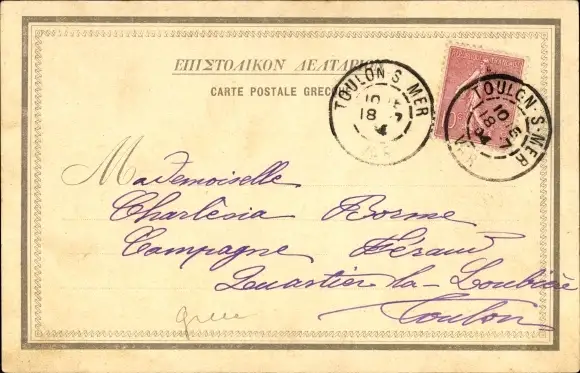 ΕΠΙΣΤΟΛΙΚΟΝ ΔΕΛΤΑΡΙΟΝ
CARTE POSTALE GRECQUE
TOULON-S-MER
10
18
04
VAR
TOULON-S-MER
10
18
04
VAR
Mademoiselle
Charlèsia Borme
Campagne
Quartier la-Loubière
Toulon